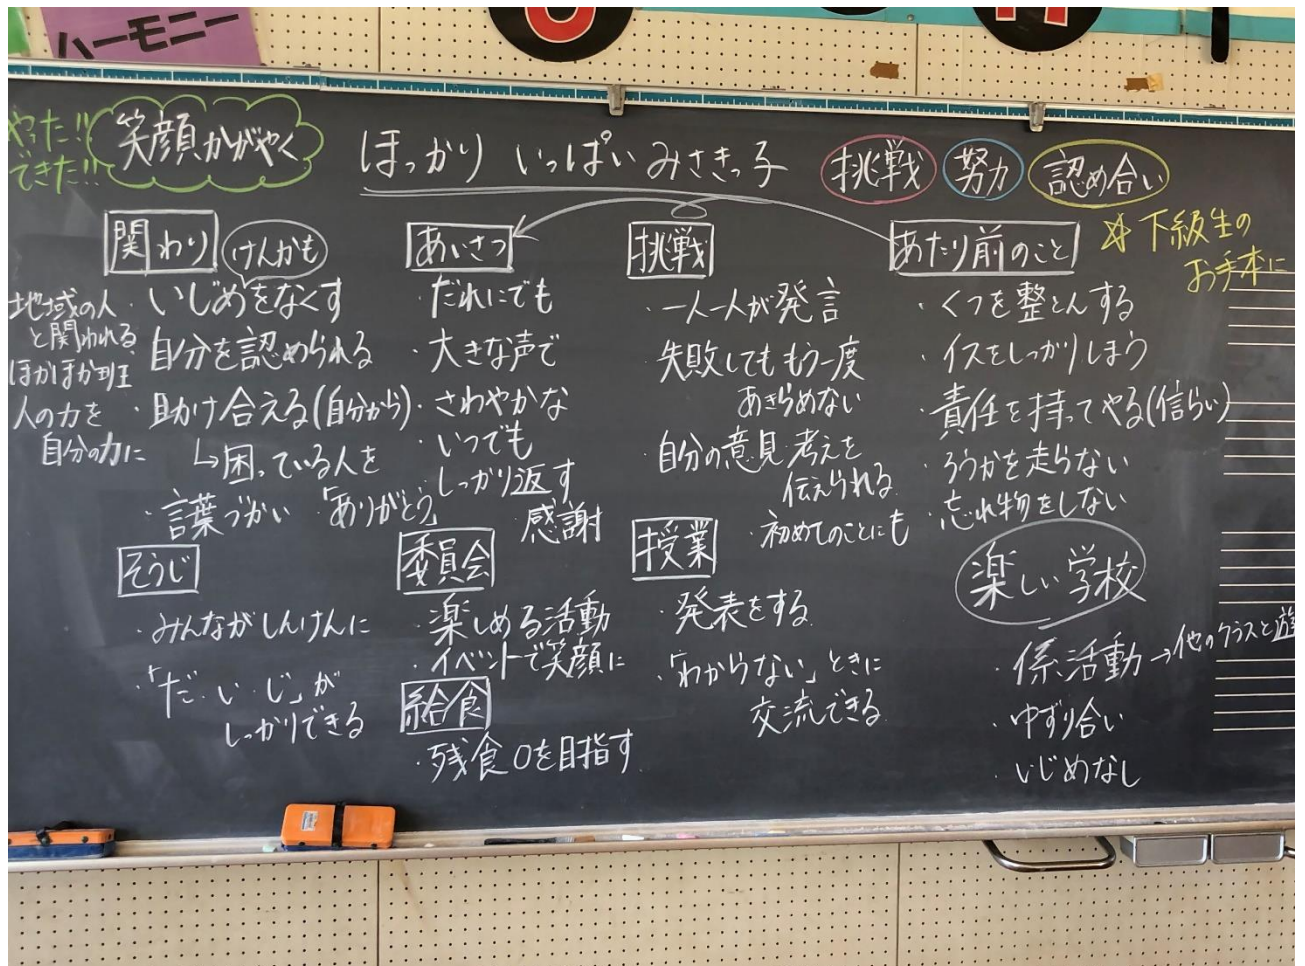 ハーモニー
やった!!
できた!!
笑顔かがやく
ほっかり いっぱい みさきっ子
挑戦 努力 認め合い
☆下級生の
お手本に
関わり
けんかも
・いじめをなくす
自分を認められる
・助け合える(自分から)
↳困っている人を
・言葉づかい 「ありがとう」
地域の人
と関われる
ほかほか班
人の力を
自分の力に
あいさつ
・だれにでも
・大きな声で
・さわやかな
・いつでも
・しっかり返す
・感謝
挑戦
・一人一人が発言
・失敗しても もう一度
あきらめない
・自分の意見・考えを
伝えられる
・初めてのことにも
あたり前のこと
・くつを整とんする
・イスをしっかりしまう
・責任を持ってやる(信らい)
・ろうかを走らない
・忘れ物をしない
そうじ
・みんながしんけんに
・「だ・い・じ」が
しっかりできる
委員会
・楽しめる活動
・イベントで笑顔に
給食
・残食0を目指す
授業
・発表をする
・「わからない」ときに
交流できる
楽しい学校
・係活動→他のクラスと遊
・ゆずり合い
・いじめなし